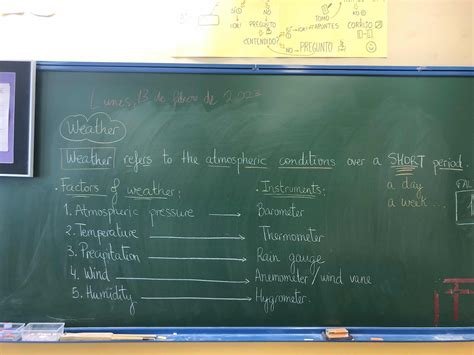 ¿SÍ
NO
TOMO
APUNTES
CORRIJO
PREGUNTO
CONTENIDO?
NO → PREGUNTO
Lunes, 13 de febrero de 2023
Weather
Weather refers to the atmospheric conditions over a SHORT period.
a day
a week...
· Factors of weather:
· Instruments:
1. Atmospheric pressure → Barometer
2. Temperature → Thermometer
3. Precipitation → Rain gauge
4. Wind → Anemometer / wind vane
5. Humidity → Hygrometer.